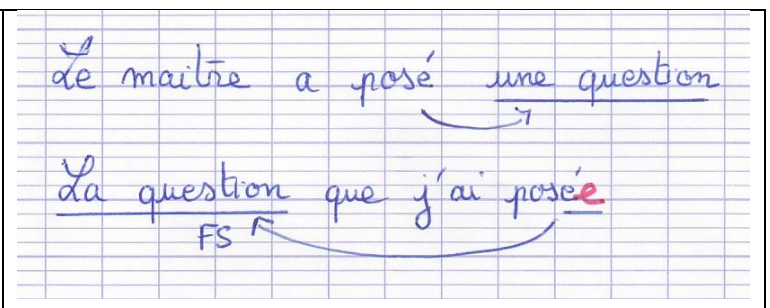 Le maitre a posé une question
La question que j'ai posée
FS